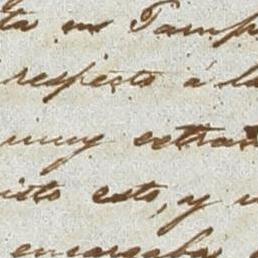 ta en Tamp
respecto á la
muy extra
isto esto, y
encargaba